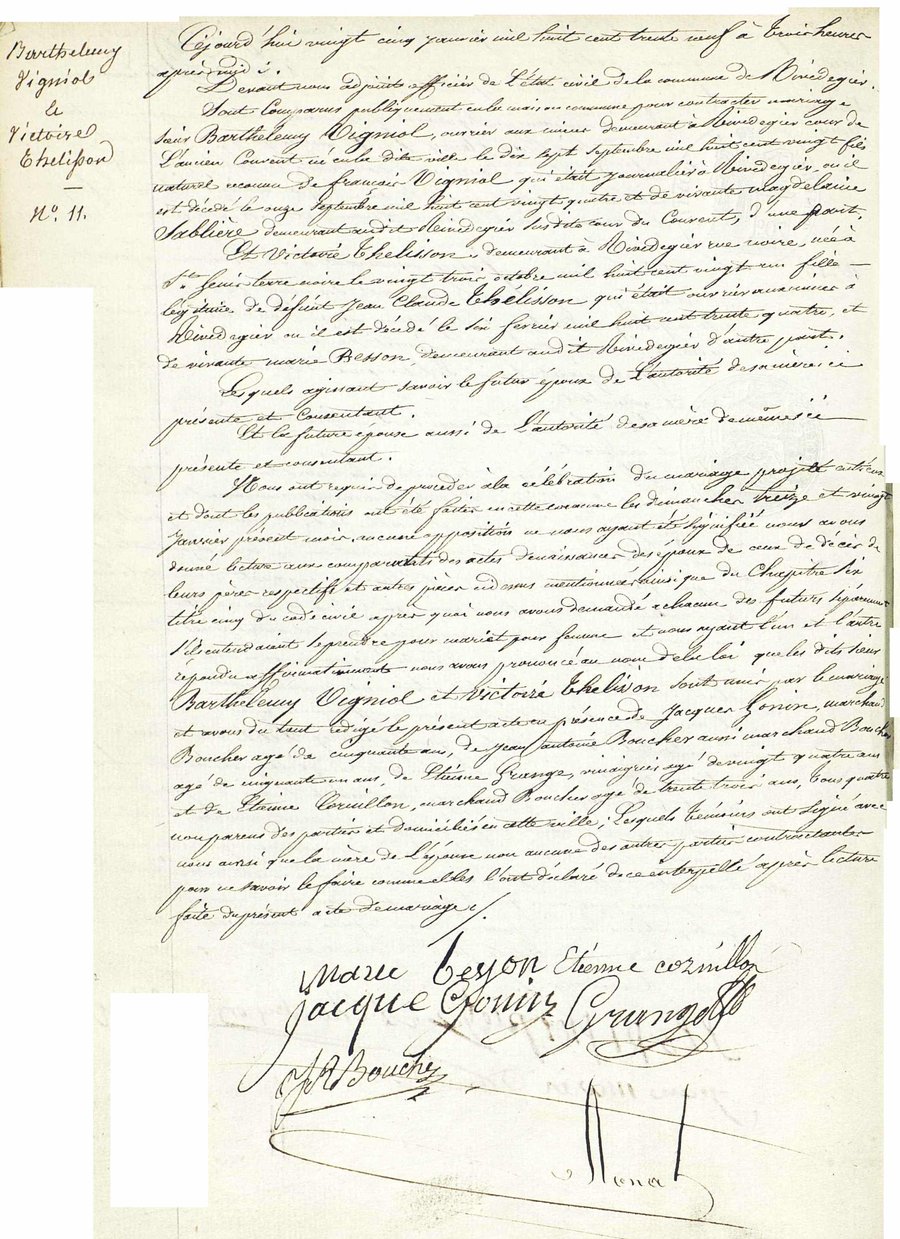 Barthelemy
Vigniol
&
Victoire
Thelisson
—
N°. 11.
Cejourd'hui vingt cinq janvier mil huit cent trente neuf à trois heures
après midi.
Devant nous adjoint officier de l'état civil de la commune de Rivedegier.
Sont comparus publiquement en la maison commune pour contracter mariage
sieur Barthelemy Vigniol, ouvrier aux mines demeurant à Rivedegier cour de
L'ancien Couvent né en la dite ville le dix sept Septembre mil huit cent vingt fils
naturel reconnu de françois Vigniol qui était journalier à Rivedegier, où il
est décédé le onze Septembre mil huit cent vingt quatre, et de vivante magdelaine
Sablière demeurant audit Rivedegier susdite cour du Couvent, d'une part.
Et Victoire Thelisson, demeurant à Rivedegier rue noire, née à
St. Genis terre noire le vingt trois octobre mil huit cent vingt un fille —
légitime de défunt Jean Claude Thélisson qui était ouvrier aux mines à
Rivedegier où il est décédé le six fevrier mil huit cent trente quatre, et
de vivante marie Besson demeurant audit Rivedegier d'autre part.
Lesquels agissant savoir le futur époux de L'autorité de sa mère ici
présente et consentant.
Et la future épouse aussi de L'autorité de sa mère de même ici
présente et consentant.
Nous ont requis de proceder à la célébration du mariage projetté entr'eux
et dont les publications ont été faites en cette commune les dimanches treize et vingt
Janvier présent mois, aucune opposition ne nous ayant été signifiée nous avons
donné lecture aux comparants des actes de naissances des époux de ceux de décès de
leurs pères respectifs et autres pièces cidessus mentionnées ainsi que du Chapitre six
titre cinq du code civil après quoi nous avons demandé a chacun des futurs séparément
s'ils entendaient se prendre pour mari et pour femme et nous ayant l'un et l'autre
répondu affirmativement nous avons prononcé au nom de la loi que les dits sieurs
Barthelemy Vigniol et Victoire Thelisson sont unis par le mariage
et avons du tout rédigé le présent acte en présence de Jacques Gonin, marchand
Boucher agé de cinquante ans, de Jean antoine Boucher aussi marchand Boucher
agé de cinquante un ans, de Etienne Grange, vinaigrier agé de vingt quatre ans
et de Etienne Cornillon, marchand Boucher agé de trente trois ans, tous quatre
non parens des parties et domiciliés en cette ville; Lesquels témoins ont signé avec
nous ainsi que la mère de l'épouse non aucune des autres parties contractantes
pour ne savoir le faire comme elles l'ont déclaré de ce enterpellé après lecture
faite du présent acte de mariage ./.
Marie beson Etienne cornillon
Jacque Gonin Grange
J A Boucher